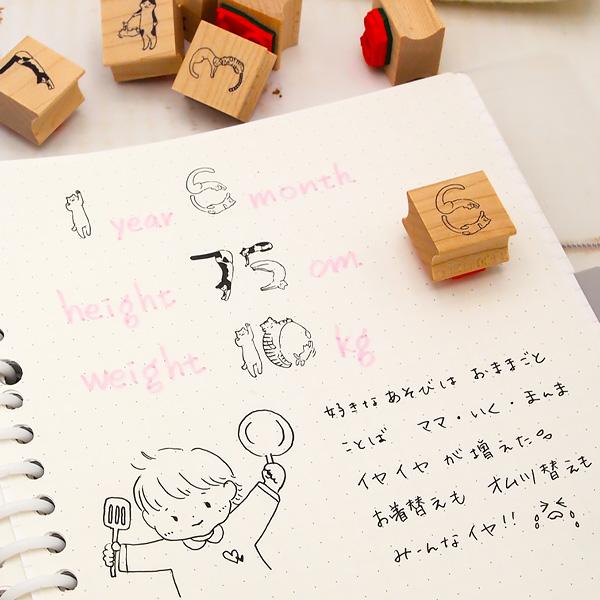 1 year 6 month
height 75 cm
weight 10 kg
好きなあそびは おままごと
ことば ママ・いく・まんま
イヤイヤ が増えた。
お着替えも オムツ替えも
みーんなイヤ!!